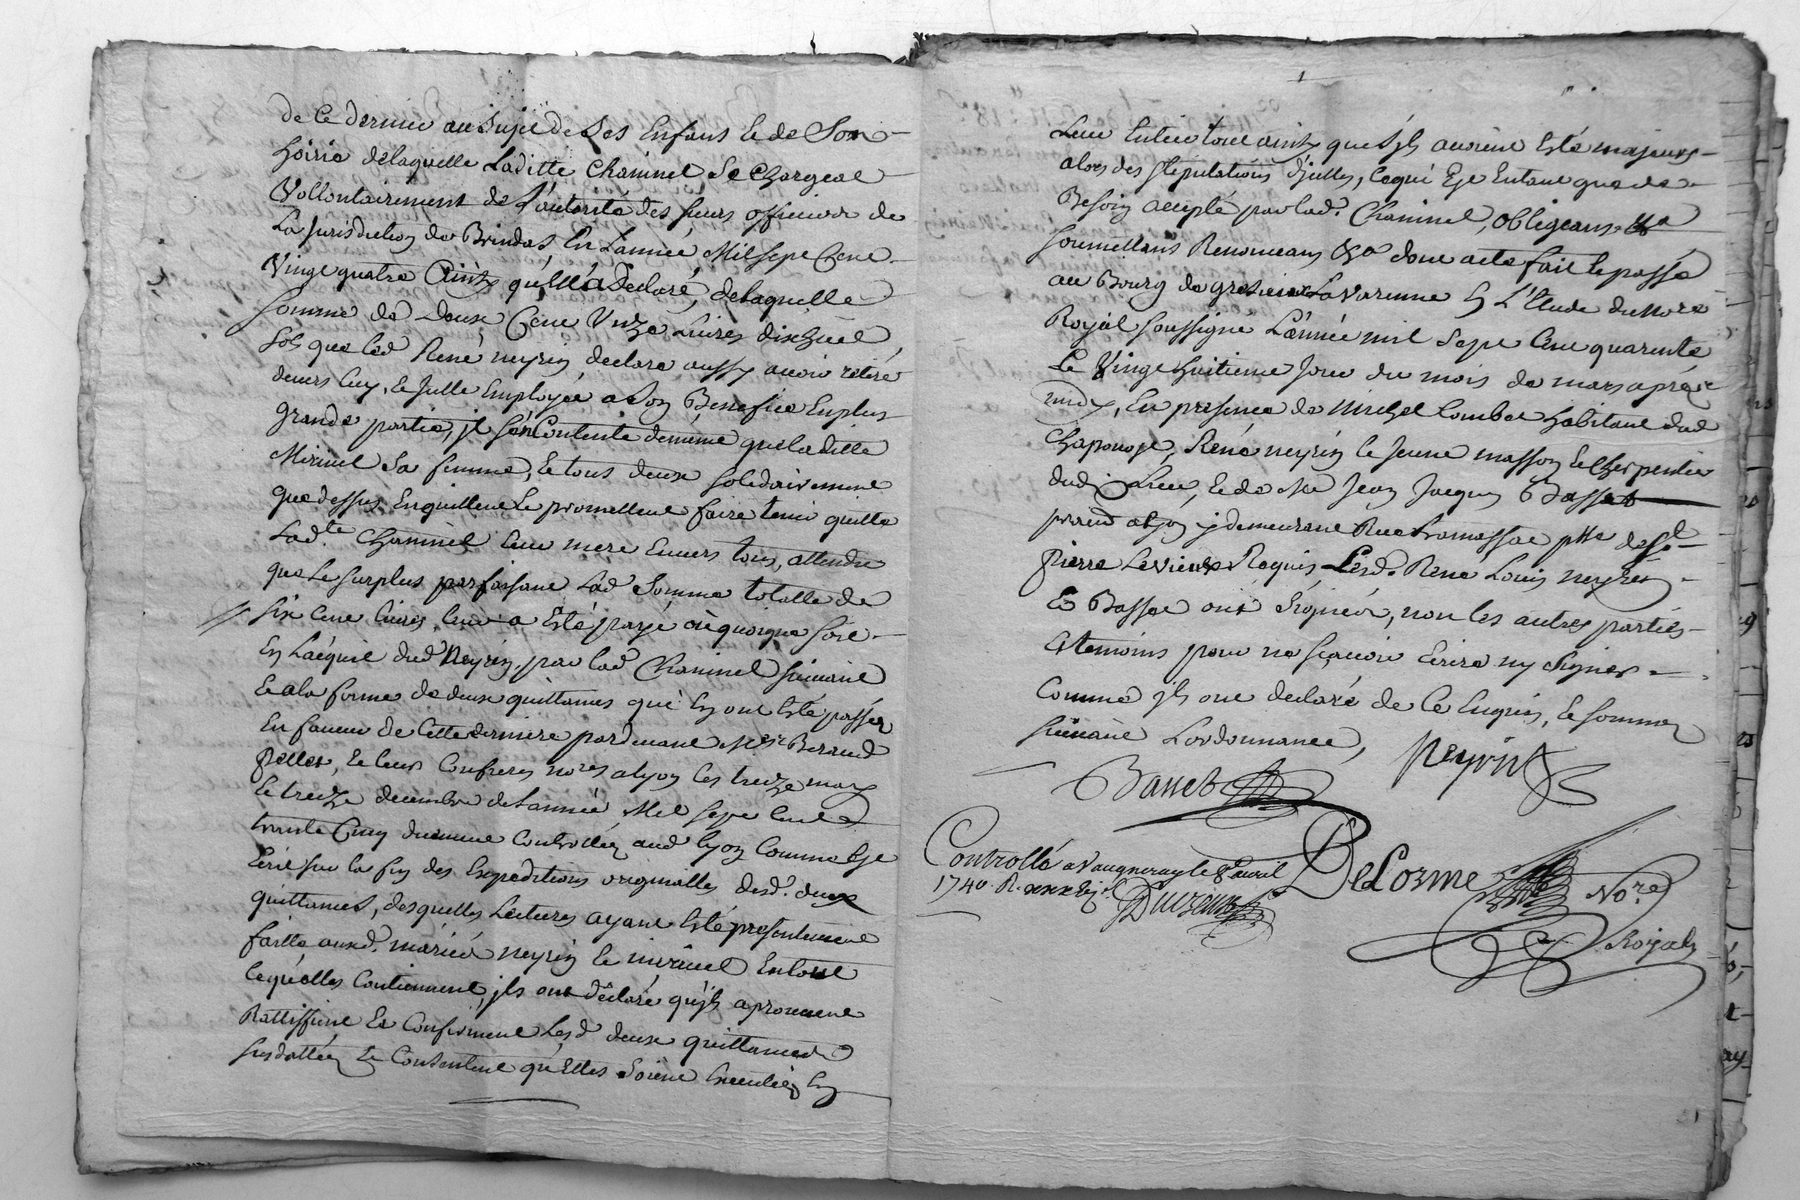 de ce dernier au Sujet de Ses Enfans Et de Son
hoirie delaquelle Laditte Chaninel Se Chargeat
Vollontairement de L'autorité des sieurs officiers de
La Jurisdiction de Brindas En L'année Mil sept Cent
Vingt quatre Ainsy qu'Elle a Declaré, delaquelle
somme de Deux Cent Unze Livres dixhuit
sols que led René neyrin declare aussy avoir retiré
devers luy, et Jcelle Employée a Son Benefice En plus
grande partie, jl s'en Contente de meme que laditte
Mirinel Sa femme, et tous deux solidairement
que dessus En quittent Et promettent faire tenir quitte
Lad.te Chaninel leur mere Envers tous, attendu
que le surplus parfaisant Lad Somme totalle de
six cent livres, leur a Esté payé
En L'acquit dud Neyrin, par lad Chaninel suivant
Et a la forme de deux quittances qui En ont Esté passées
En faveur de Cette derniere pardevant M.es Beraud
et leur Confrere no.res a Lyon les treize may
Et treize decembre de L'année Mil Sept Cent
trente Cinq Controllées aud Lyon Comme Est
Ecrit sur la fin des Expeditions originalles desd. deux
quittances, desquelles Lectures ayant Esté presentement
faitte auxd. mariés neyrin Et mirinel En tout
ce qu'Elles Contiennent, jls ont déclaré qu'jls aprouvent
Rattiffient Et Confirment Lesd deux quittances
susdattées Et Consentent qu'Elles Soient Executées En
Leur Entier tout ainsy que s'jls avoient Esté majeurs
alors des stipulations d'jcelles, ce qui Est Entant que de
Besoin accepté par lad. Chaninel, obligeans &a
soumettans Renonceans &a dont acte fait Et passé
au Bourg de grezieu La Varenne En L'Etude du No.re
Royal soussigné L'année mil Sept Cent quarente
Le Vingt huitieme Jour du mois de mars après
midy, En presence de Michel Combet habitant dud
Chaponost, René neyrin le Jeune masson Et Cherpentier
dud Lieu, Et de M.e Jean Jacques Basset
pratt a Lyon y demeurant Rue Tramassac p.sse de S.t
Pierre Le vieux Requis Lesd. René Louis neyrin
Et Basset ont Signé, non les autres parties
Et temoins pour ne sçavoir Ecrire ny signer
Comme jls ont declaré de Ce Enquis, Et sommés
suivant L'ordonnance,
Basset Neyrin
Controllé a Vaugneray le 8.e avril
1740. R.
DeLorme No.re
Royal